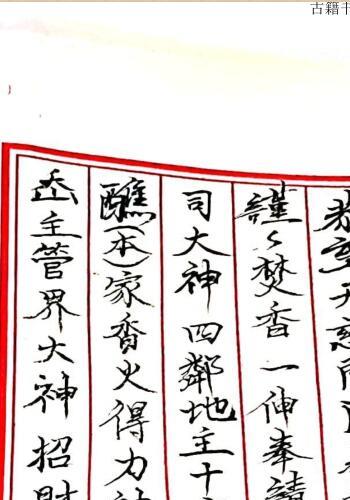 古籍书
謹々焚香一伸奉請
司大神四鄰地主十
醮(本)家香火得力
主管界大神招財